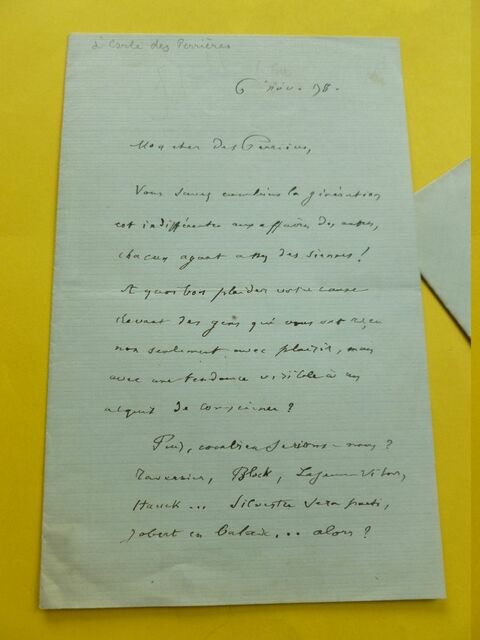 à Carle des Perrières
6 nov. 78.
Mon cher des Perrières,
Vous savez combien la génération
est indifférente aux affaires des autres,
chacun ayant assez des siennes !
A quoi bon plaider votre cause
devant des gens qui vous ont reçu
non seulement avec plaisir, mais
avec une tendance visible à un
acquit de conscience ?
Puis, combien serions-nous ?
Tavernier, Block,
Hauck... Silvestre sera parti,
Jobert en balade... alors ?